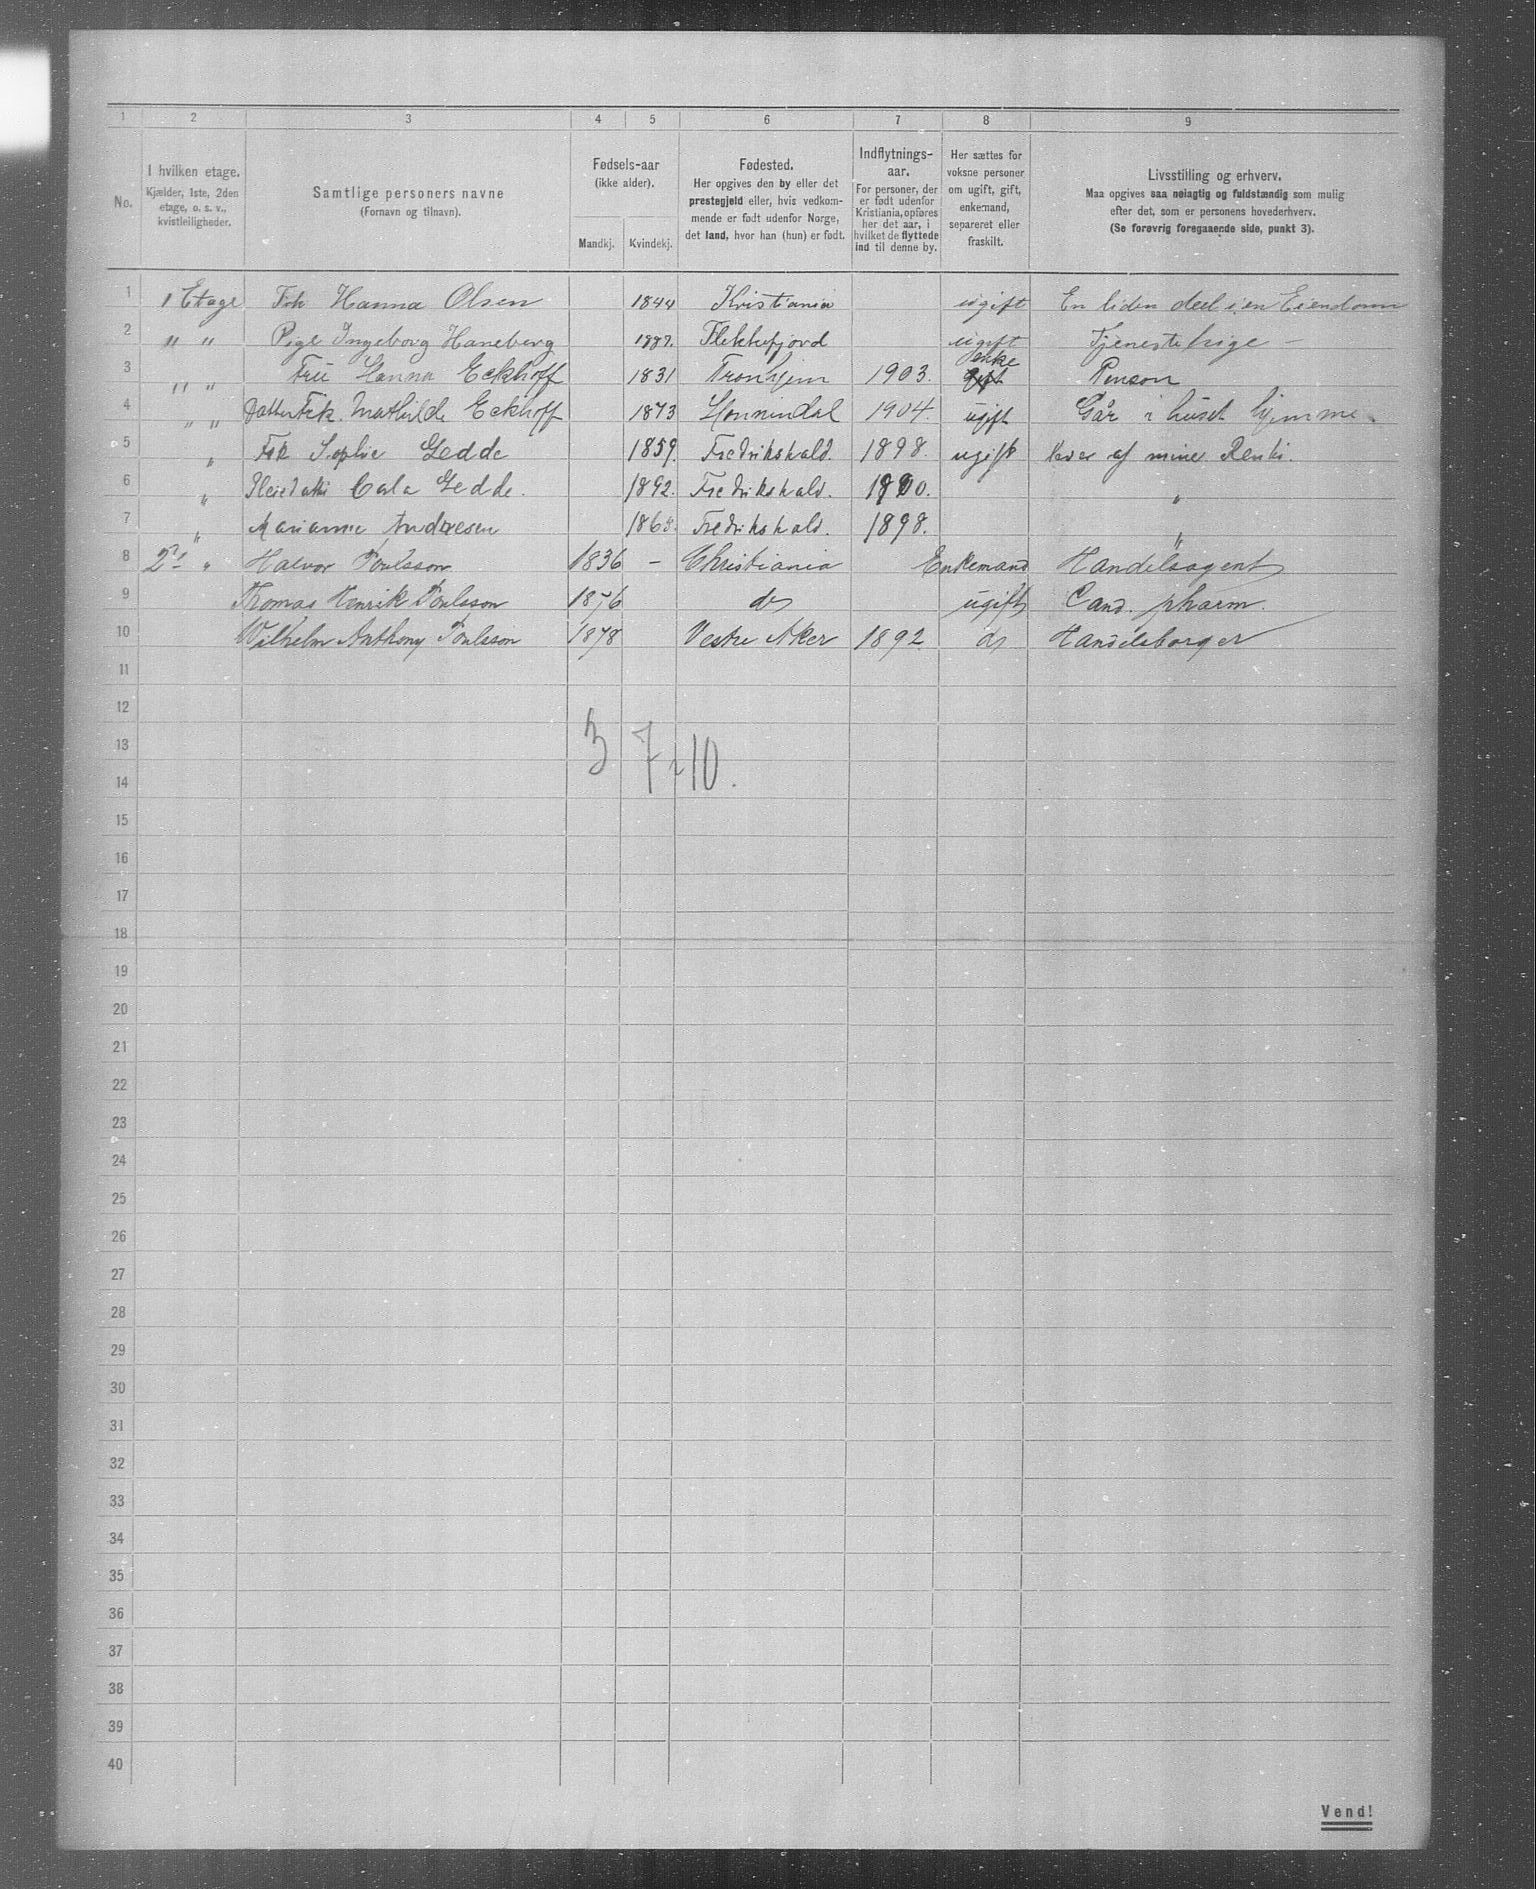 1 2 3 4 5 6 7 8 9
No.
I hvilken etage.
Kjælder, 1ste, 2den
etage, o. s. v.,
kvistleiligheder.
Samtlige personers navne
(Fornavn og tilnavn).
Fødsels-aar
(ikke alder).
Mandkj. Kvindekj.
Fødested.
Her opgives den by eller det
prestegjeld eller, hvis vedkom-
mende er født udenfor Norge,
det land, hvor han (hun) er født.
Indflytnings-
aar.
For personer, der
er født udenfor
Kristiania, opføres
her det aar, i
hvilket de flyttede
ind til denne by.
Her sættes for
voksne personer
om ugift, gift,
enkemand,
separeret eller
fraskilt.
Livsstilling og erhverv.
Maa opgives saa nøiagtig og fuldstændig som mulig
efter det, som er personens hovederhverv.
(Se forøvrig foregaaende side, punkt 3).
1 1 Etage Frk Hanna Olsen 1844 Kristiania ugift En liden deel i en Eiendom
2 " " Pige Ingeborg Haneberg 1887. Flekkefjord ugift Tjenestepige -
3 " " Fru Hanna Eckhoff 1831 Tronhjem 1903. enke gift Pension
4 " " Datter Frk. Mathilde Eckhoff 1873 Hornindal 1904. ugift Går i huset hjemme.
5 " Frk Sophie Gedde 1859. Fredrikshald. 1898. ugift lever af mine Renter.
6 " Pleiedatter Carla Gedde. 1892. Fredrikshald. 1900. "
7 " Marianne Andresen 1865. Fredrikshald. 1898. "
8 2den " Halvor Poulsson 1836 - Christiania Enkemand Handelsagent
9 Thomas Henrik Poulsson 1876 do ugift Cand. pharm.
10 Wilhelm Anthony Poulsson 1878 Vestre Aker 1892 do Handelsborger
11
12
13 3 7 = 10.
14
15
16
17
18
19
20
21
22
23
24
25
26
27
28
29
30
31
32
33
34
35
36
37
38
39
40
Vend!